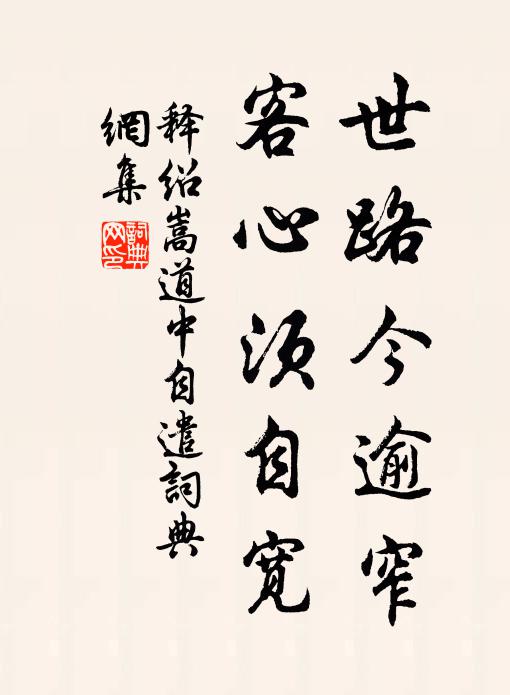 世路今逾窄
客心须自宽
释绍嵩道中自遣詞典
網集
詞典网印